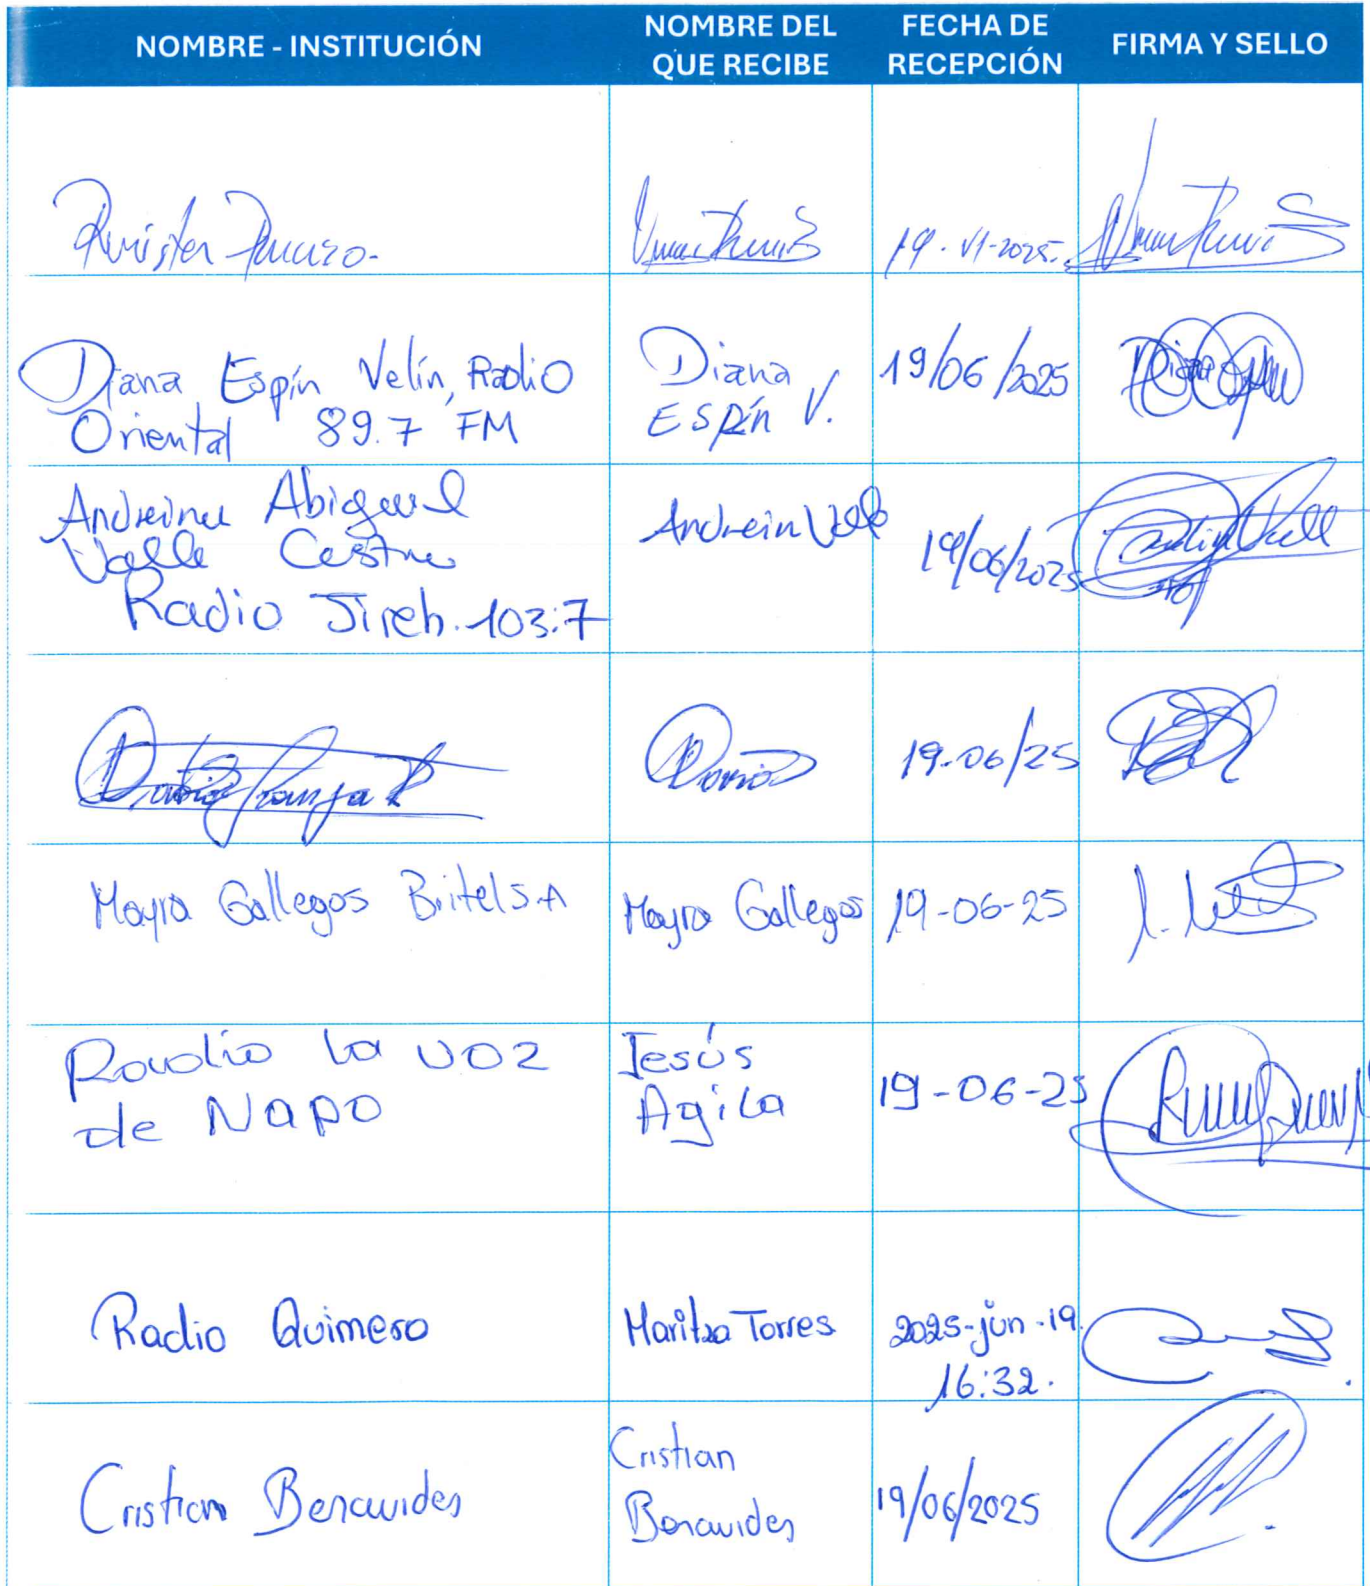 NOMBRE - INSTITUCIÓN
NOMBRE DEL
QUE RECIBE
FECHA DE
RECEPCIÓN
FIRMA Y SELLO
19-VI-2025.
Diana Espín Velín, Radio
Oriental 89.7 FM
Diana
Espín V.
19/06/2025
Andreina Abigail
Valle Castro
Radio Jireh. 103:7
Andrein Valle
19/06/2025
Dario
19-06/25
Mayra Gallegos Britel S.A
Mayra Gallegos
19-06-25
Radio la voz
de Napo
Jesús
Agila
19-06-25
Radio Quimera
Maritza Torres
2025-jun-19.
16:32.
Cristian Benavides
Cristian
Benavides
19/06/2025